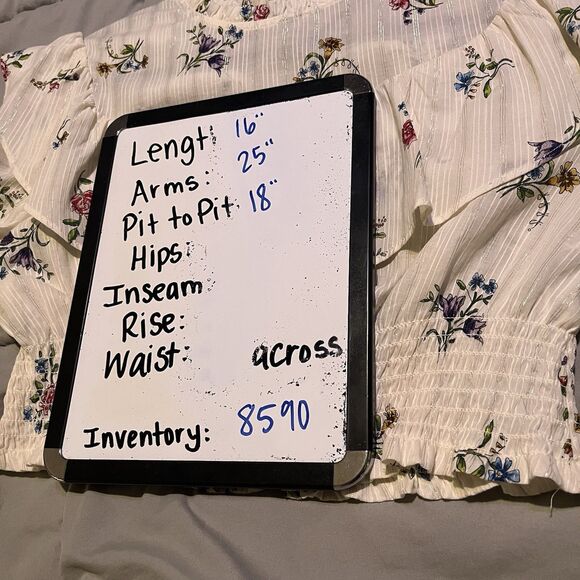 Lengt: 16"
Arms: 25"
Pit to Pit: 18"
Hips:
Inseam
Rise:
Waist: across
Inventory: 8590